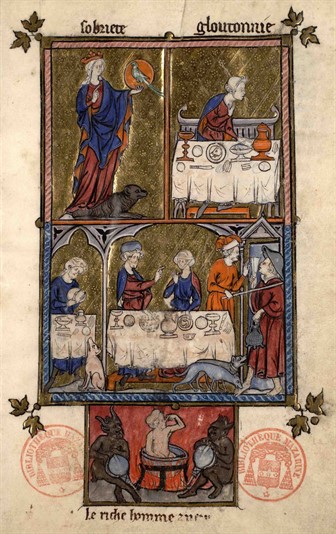 sobriete
gloutonnie
BIBLIOTHEQUE MAZARINE
BIBLIOTHEQUE MAZARINE
le riche homme